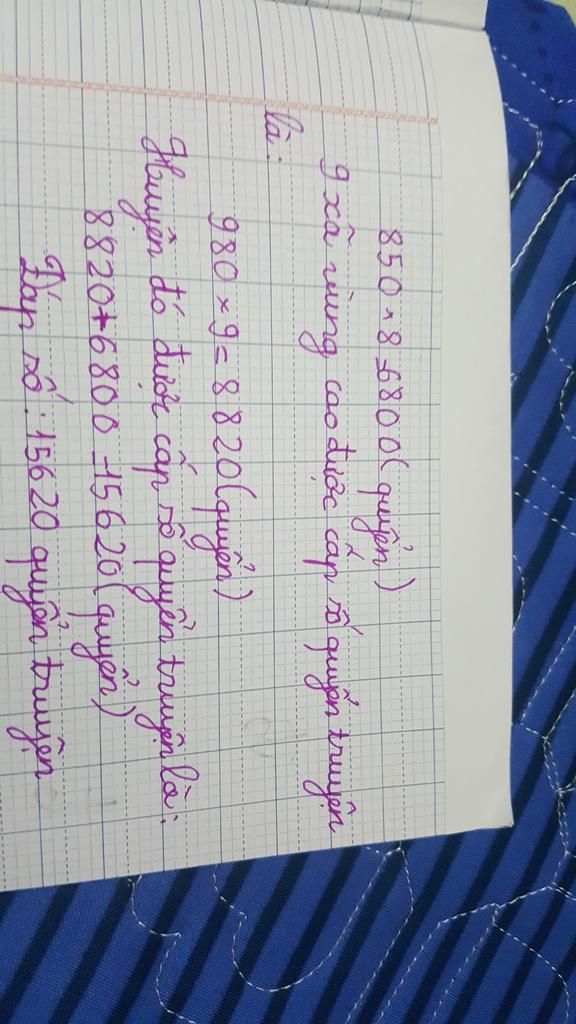 850 × 8 = 6800 (quyển)
9 xã vùng cao được cấp số quyển truyện
là:
980 × 9 = 8820 (quyển)
Huyện đó được cấp số quyển truyện là:
8820 + 6800 = 15620 (quyển)
Đáp số: 15620 quyển truyện